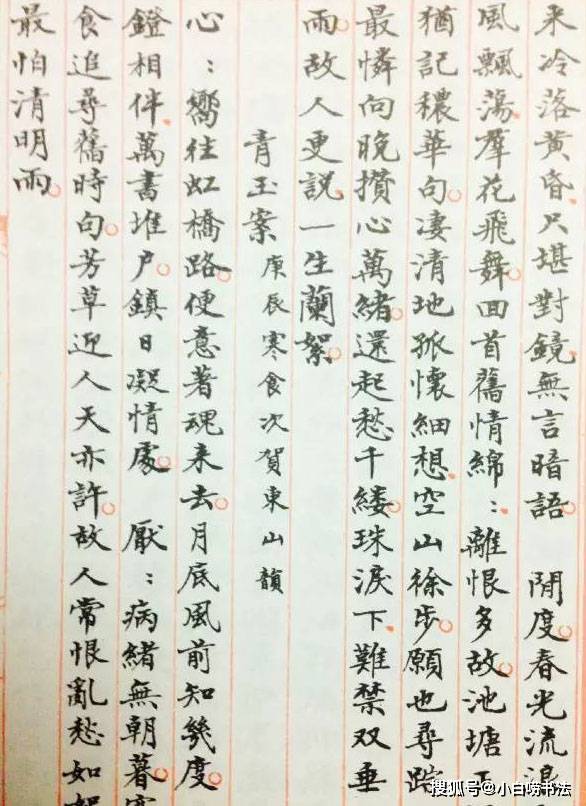 来冷落黃昏只堪對鏡無言暗語 閒度春光流浪
風飄蕩羣花飛舞回首舊情綿：離恨多故池塘
猶記穠華句凄清地孤懷細想空山徐步願也尋踪
最憐向晚攢心萬緒還起愁千縷珠淚下難禁双垂
雨故人更説一生蘭絮
青玉案 庚辰寒食次賀東山韻
心：嚮往虹橋路便意著魂来去月底風前知幾度
鐙相伴萬書堆户鎮日凝情處 厭：病緒無朝暮寒
食追尋舊時句芳草迎人天亦許故人常恨亂愁如絮
最怕清明雨
搜狐号@小白唠书法